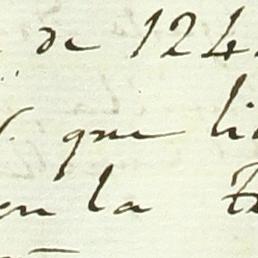 de 124
que li
en la